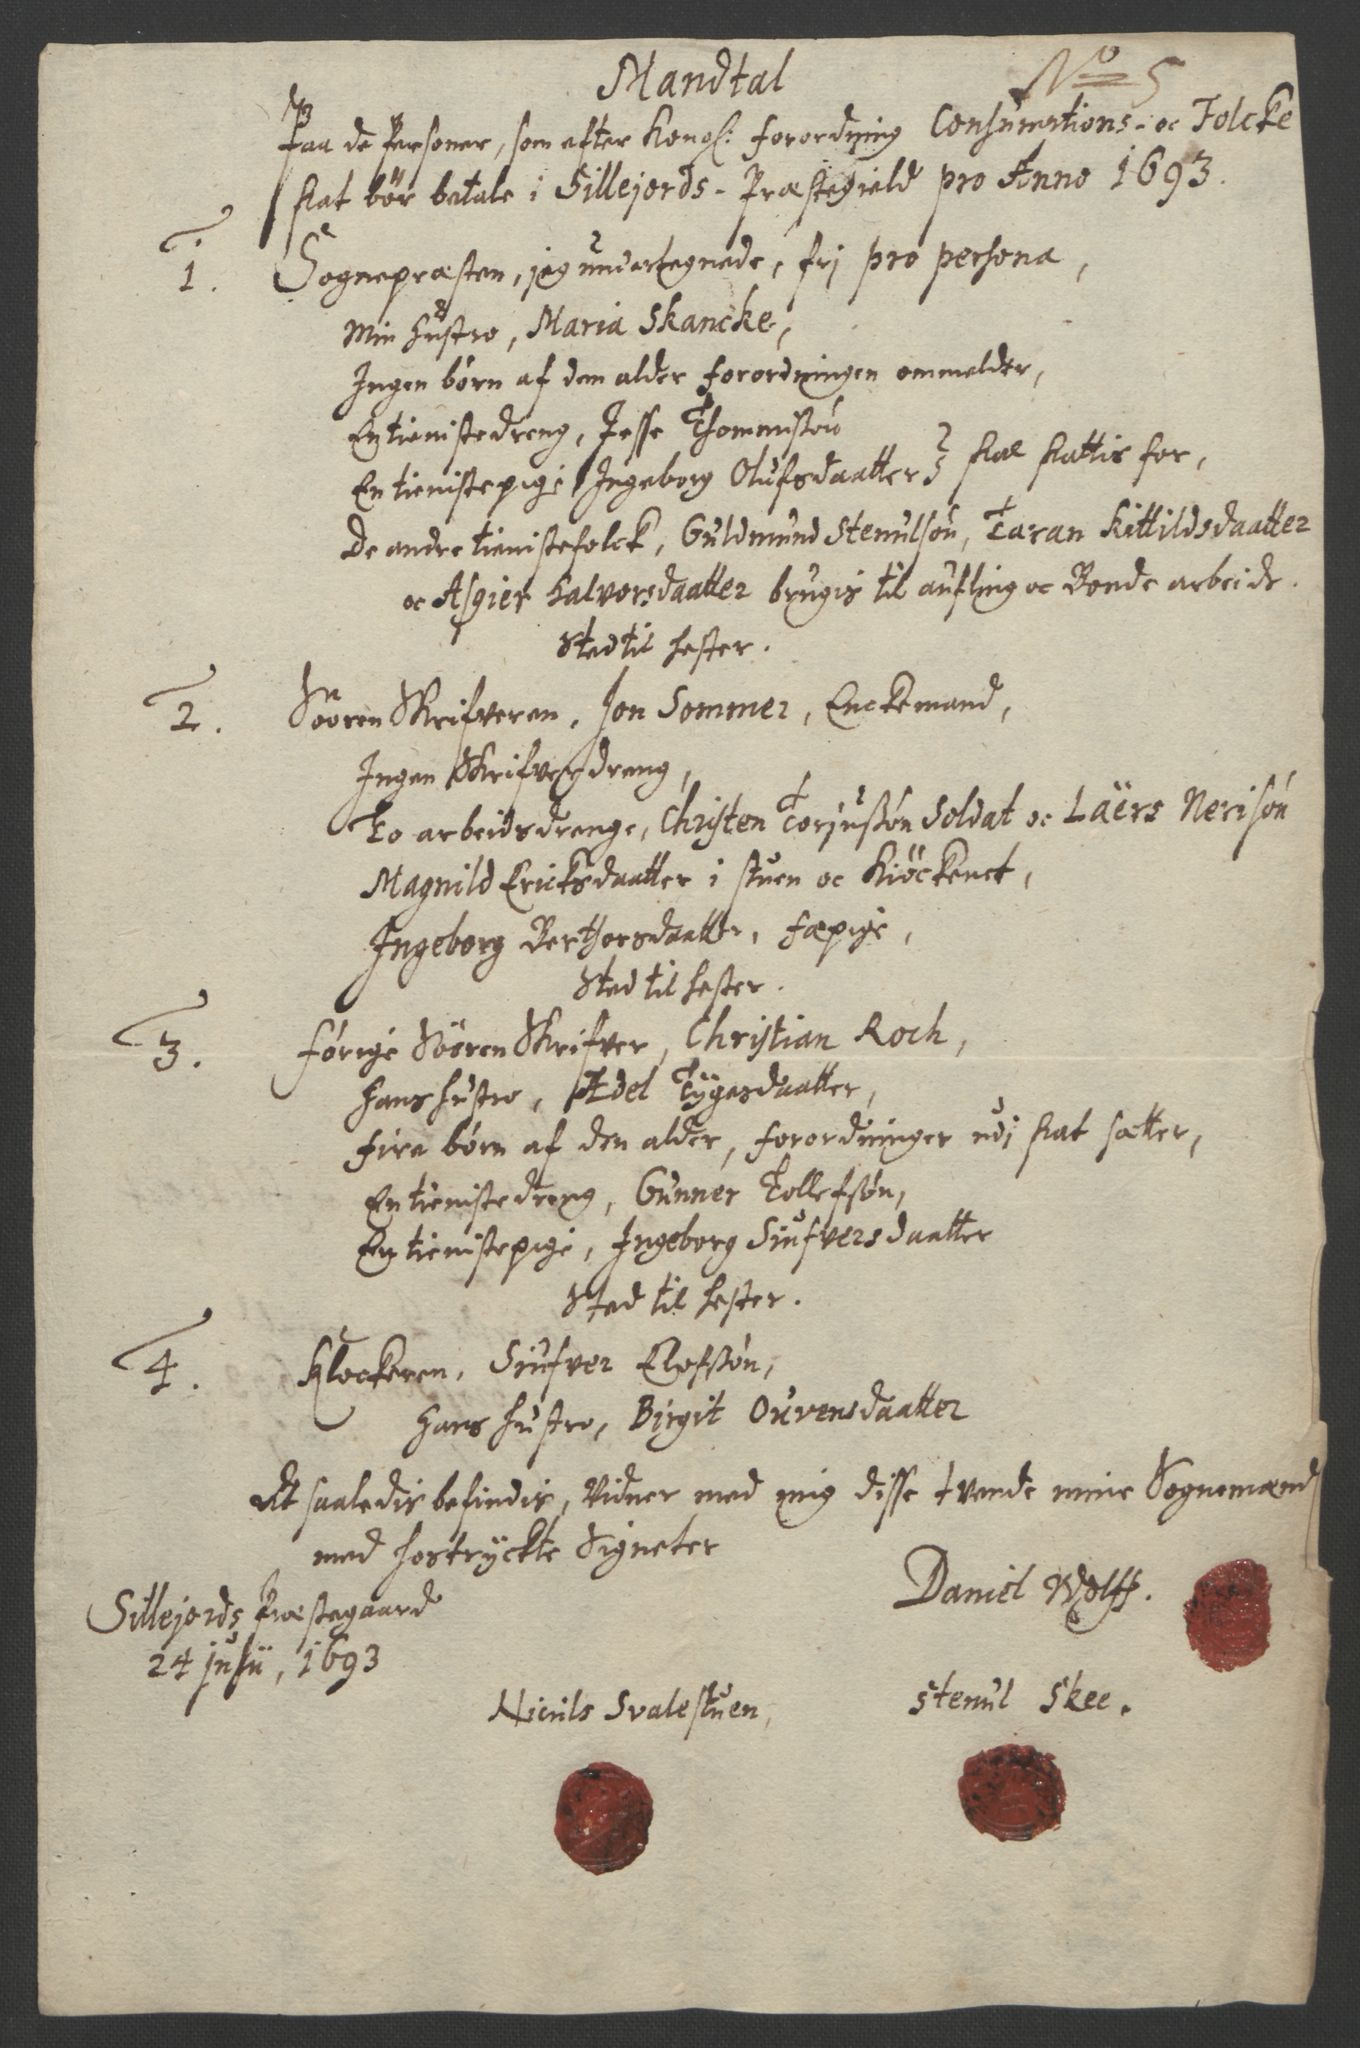 Mandtal
No 5
Paa de Personer, som efter Kongl: forordning Consumptions- oc Folcke
skat bör betale i Sillejords - Præstegield pro Anno 1693.
1. Sognepræsten, jeg undertegnede, frj pro persona,
Min hustro, Maria Skancke,
Ingen börn af dem alder forordningen ommelder,
En tienistedreng, Jesse Thommissön
En tienistepige, Ingeborg Olufsdaatter } skal skattis for,
De andre tienistefolck, Guldmund Stenulsön, Taran Kittildsdaatter
oc Asgier Halvorsdaatter brugis til aufling oc Bonde arbeide.
Sted til hester.
2. Sooren Skrifveren, Jon Sommer, Enckemand,
Ingen Skrifverdreng,
To arbeidsdrenge, Christen Torjussön Soldat oc Laërs Nerisön
Magnild Ericksdaatter i stuen oc Kiöckenet,
Ingeborg Berthorsdaatter, fæpige,
Sted til hester.
3. förige Sooren Skrifver, Christian Roch,
Hans hustro, Adel Tygesdaatter,
Fire börn af den alder, forordninger udj skat sætter,
En tienistedreng, Gunner Tollefsön,
En tienistepige, Ingeborg Siufversdaatter
Sted til hester.
4. Klockeren, Siufver Elofssön,
Hans hustro, Birgit Ouvensdaatter
At saaledis befindis, Vidner med mig disse tvende mine Sognemænd
med hostryckte Signeter
Daniel Wolff.
Sillejords Præstegaard
24 julii, 1693
Niculs Svalestuen,
Stenul Skee.